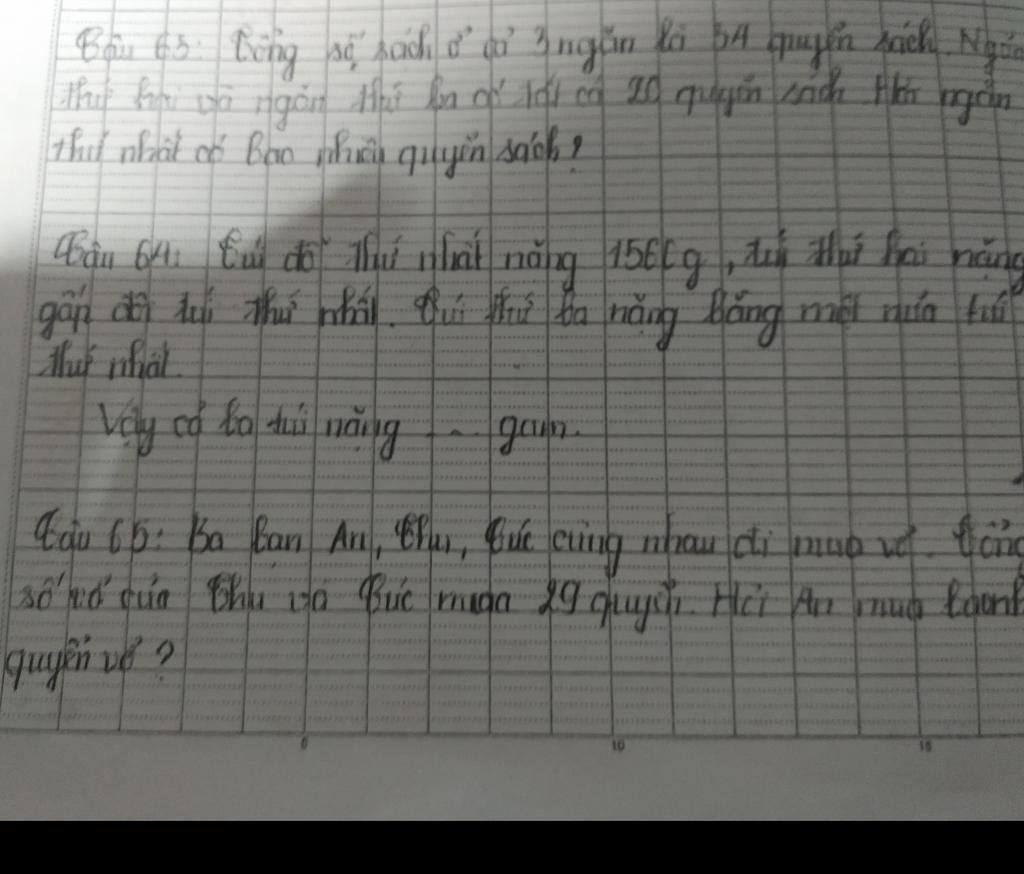 Câu 63: Tổng số sách ở cả 3 ngăn là 54 quyển sách. Ngăn
thứ hai và ngăn thứ ba có tất cả 20 quyển sách Hỏi ngăn
thứ nhất có Bao nhiêu quyển sách?
Câu 64: Túi đồ thứ nhất nặng 156 g, túi thứ hai nặng
gấp đôi túi thứ nhất. Túi thứ ba nặng Bằng một nửa túi
thứ nhất.
Vậy cả ba túi nặng ... gam.
Câu 65: Ba Bạn An, Thu, Đức cùng nhau đi mua vở. Tổng
số vở của Thu và Đức mua 29 quyển. Hỏi An mua
quyển vở?
0 10 15